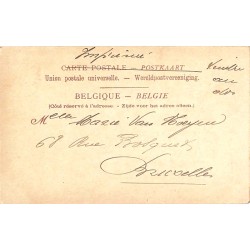 Imprimé
CARTE POSTALE – POSTKAART
Union postale universelle. – Wereldpostvereeniging.
BELGIQUE – BELGIE
(Côté réservé à l'adresse. – Zijde voor het adres alleen.)
Melle Marie Van
68 Rue
Bruxelles